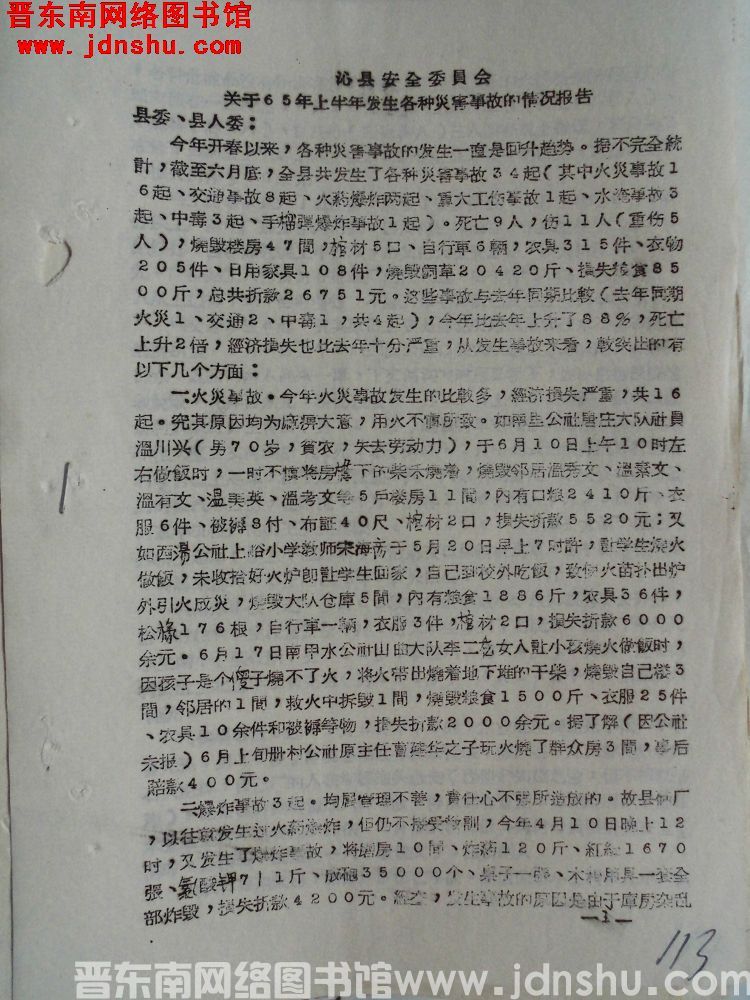 晋东南网络图书馆
www.jdnshu.com
沁县安全委员会
关于65年上半年发生各种災害事故的情况报告
县委、县人委：
今年开春以来，各种災害事故的发生一直是回升趋势。据不完全統
計，截至六月底，全县共发生了各种災害事故34起（其中火災事故1
6起、交通事故8起、火药爆炸两起、重大工伤事故1起、水淹事故3
起、中毒3起、手榴弹爆炸事故1起）。死亡9人，伤11人（重伤5
人），燒毀楼房47間，棺材5口、自行車6輛，农具315件、衣物
205件、日用家具108件，燒毀飼草20420斤、損失粮食85
00斤，总共折款26751元。这些事故与去年同期比較（去年同期
火災1、交通2、中毒1，共4起），今年比去年上升了88%，死亡
上升2倍，經济損失也比去年十分严重，从发生事故来看，較突出的有
以下几个方面：
一、火災事故。今年火災事故发生的比較多，經济損失严重，共16
起。究其原因均为麻痹大意，用火不慎所致。如南里公社唐庄大队社員
溫川兴（男70岁，貧农，失去劳动力），于6月10日上午10时左
右做飯时，一时不慎将房檐下的柴禾燒着，燒毀邻居溫秀文、溫蔡文、
溫有文、温美英、溫考文等5戶楼房11間，內有口粮2410斤、衣
服6件、被褥8付、布証40尺、棺材2口，損失折款5520元；又
如西湯公社上峪小学教师于5月20日早上7时許，让学生燒火
做飯，未收拾好火炉即让学生回家，自己到校外吃飯，致使火苗扑出炉
外引火成災，燒毀大队仓庫5間，內有粮食1886斤，农具36件，
松椽176根，自行車一輛，衣服3件，棺材2口，損失折款6000
余元。6月17日南甲水公社山曲大队李二女人让小孩燒火做飯时，
因孩子是个傻子燒不了火，将火带出燒着地下堆的干柴，燒毀自己楼3
間，邻居的1間，救火中拆毀1間，燒毀粮食1500斤、衣服25件
、农具10余件和被褥等物，損失折款2000余元。据了解（因公社
未报）6月上旬册村公社原主任曹華之子玩火燒了群众房3間，事后
賠款400元。
二、爆炸事故3起。均屬管理不善，責任心不强所造成的。故县厂
，以往就发生过火药爆炸，但仍不接受教訓，今年4月10日晚上12
时，又发生了爆炸事故，将庫房10間、炸药120斤、紅紙1670
張、氯酸钾711斤、成砲35000个、桌子一張、木柜用具一套全
部炸毀，損失折款4200元。經查，发生事故的原因是由于庫房杂乱
—1—
113
晋东南网络图书馆www.jdnshu.com